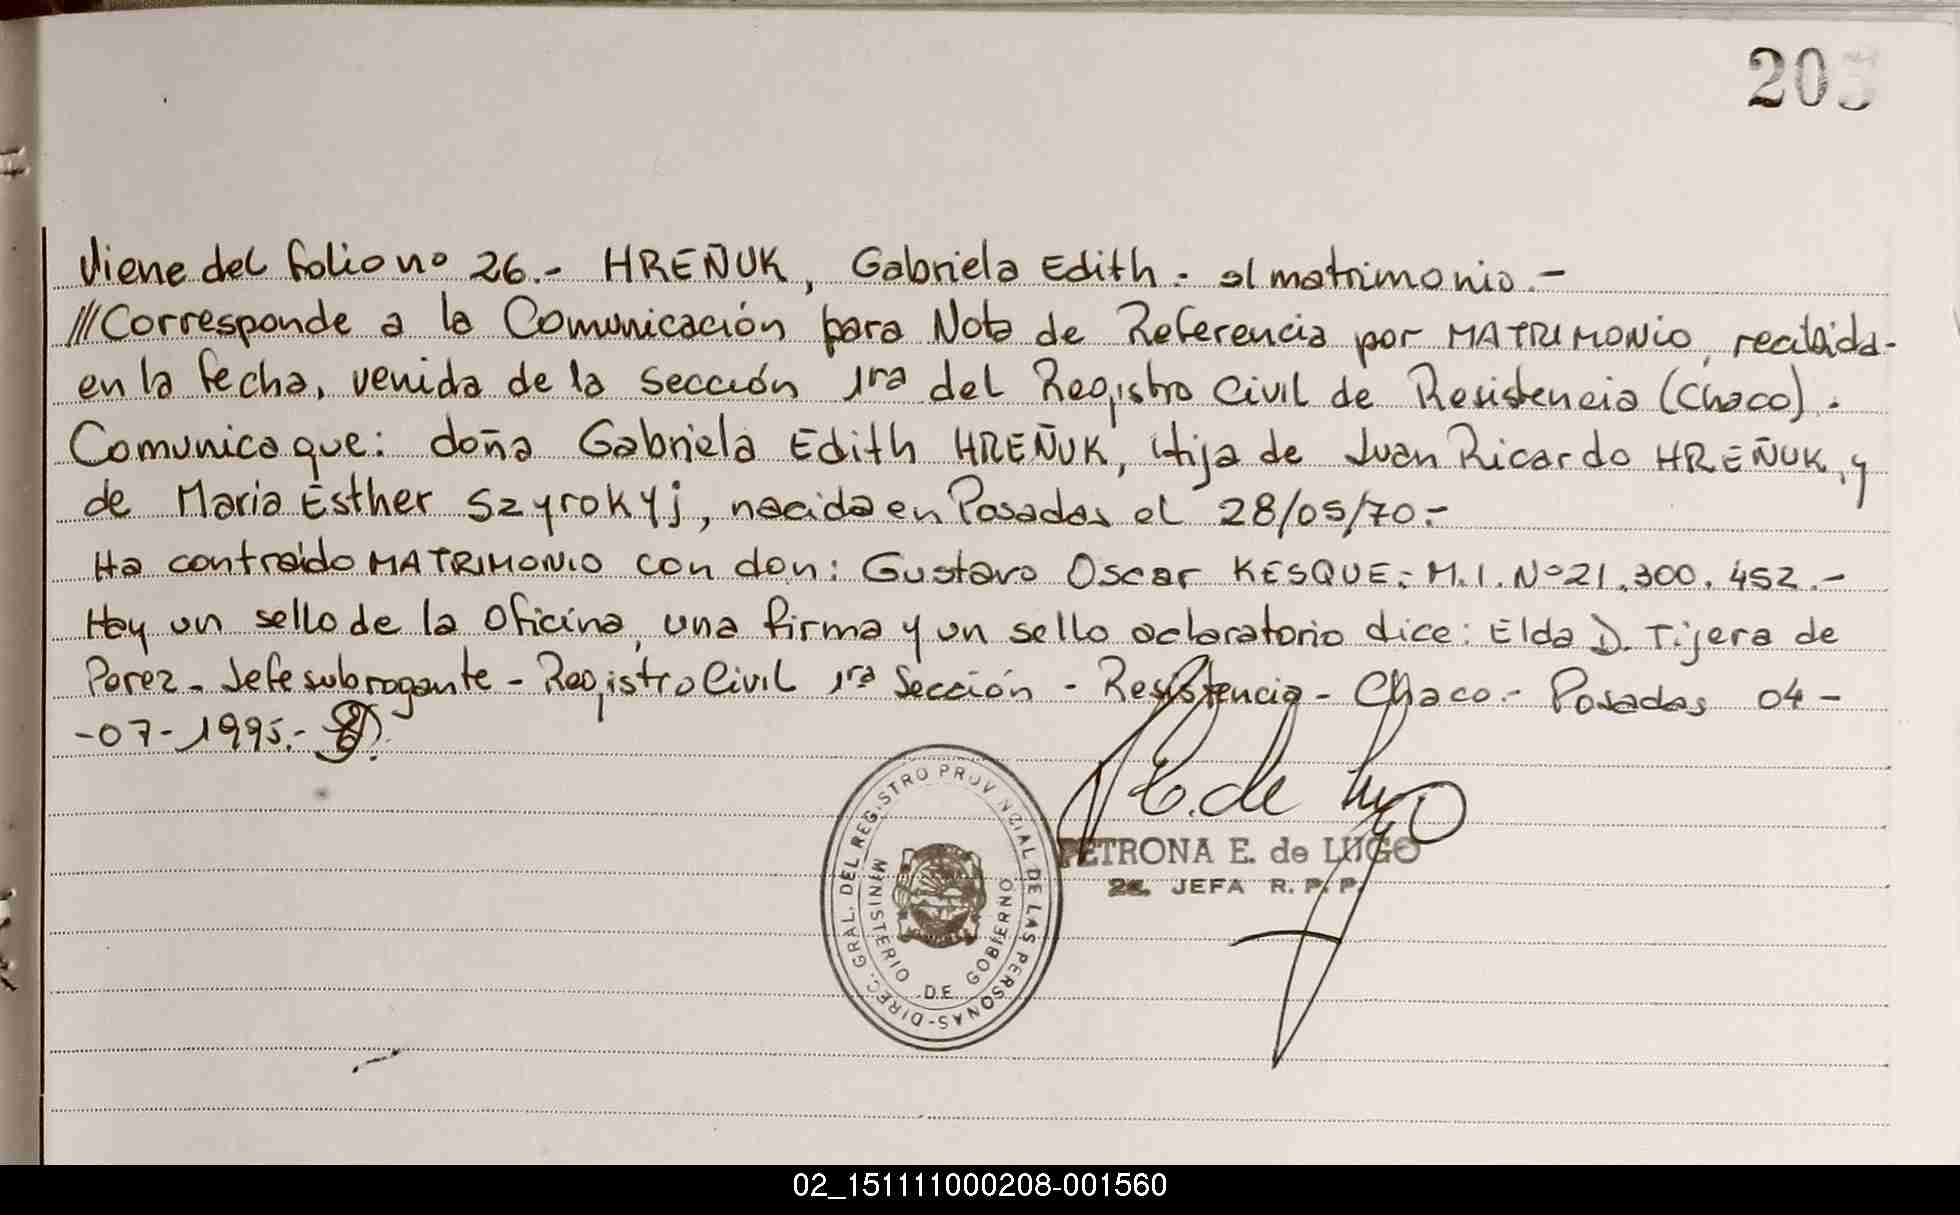 205
Viene del folio nº 26.- HREÑUK, Gabriela Edith - s/ matrimonio.-
///Corresponde a la Comunicación para Nota de Referencia por MATRIMONIO, recibida-
en la fecha, venida de la sección 1ra del Registro Civil de Resistencia (Chaco).
Comunica que: doña Gabriela Edith HREÑUK, Hija de Juan Ricardo HREÑUK, y
de Maria Esther Szyrokyj, nacida en Posadas el 28/05/70.-
Ha contraido MATRIMONIO con don: Gustavo Oscar KESQUE.- M.I. Nº 21.300.452.-
Hay un sello de la Oficina, una firma y un sello aclaratorio dice: Elda D. Tijera de
Perez - Jefe subrogante - Registro Civil 1ra Sección - Resistencia - Chaco.- Posadas 04-
-07-1995.-
P. E. de Lugo
PETRONA E. de LUGO
2a. JEFA R. P. P.
DIREC. GRAL. DEL REGISTRO PROVINCIAL DE LAS PERSONAS-
MINISTERIO DE GOBIERNO
02_151111000208-001560